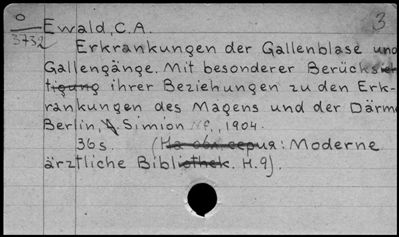 O
3732
3
Ewald, C.A.
Erkrankungen der Gallenblase und
Gallengänge. Mit besonderer Berücksich-
tigung ihrer Beziehungen zu den Erk-
rankungen des Magens und der Därme
Berlin, Simion Nf., 1904.
36s. (На обл. серия: Moderne
ärztliche Bibliothek. H.9).